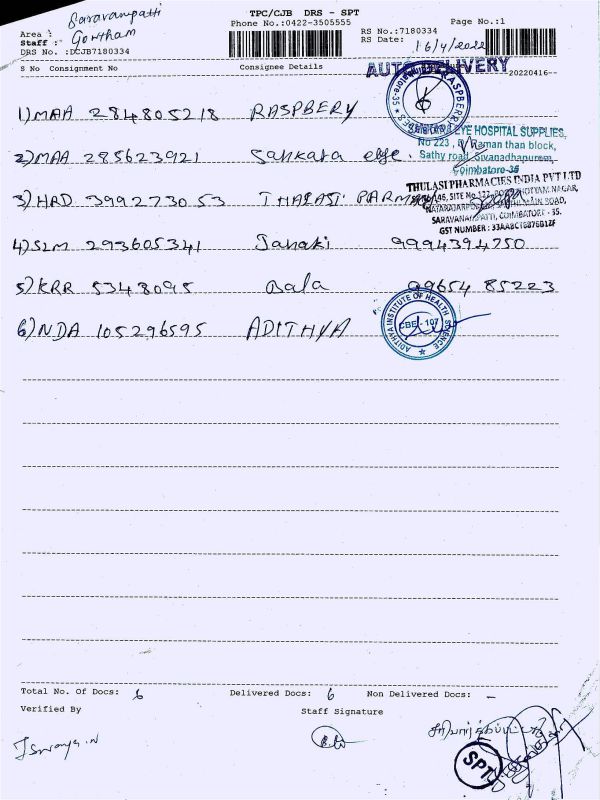 TPC/CJB DRS - SPT
Phone No.:0422-3505555
Page No.:1
Area : Saravanampatti
Staff : Gowtham
DRS No. :DCJB7180334
RS No.:7180334
RS Date: 16/4/2022
20220416--
S No Consignment No Consignee Details
AUTO DELIVERY
1) MAA 284805218 RASPBERY
RASPBERR
EYE HOSPITAL SUPPLIES,
No 223 , Raman than block,
2) MAA 285623921 Sankara eye.
Sathy road, Sivanadhapuram,
Coimbatore-35
THULASI PHARMACIES INDIA PVT LTD
3) HRD 399273053 THALASI PARMACY
SARAVANAMPATTI, COIMBATORE - 35.
GST NUMBER :
4) SLM 293605341 Janaki 9994394750
5) KRR 5348095 Bala 99654 85223
ADITHYA INSTITUTE OF HEALTH SCIENCE
CBE - 107
6) NDA 105296595 ADITHYA
Total No. Of Docs: 6 Delivered Docs: 6 Non Delivered Docs: -
Verified By Staff Signature
SPT